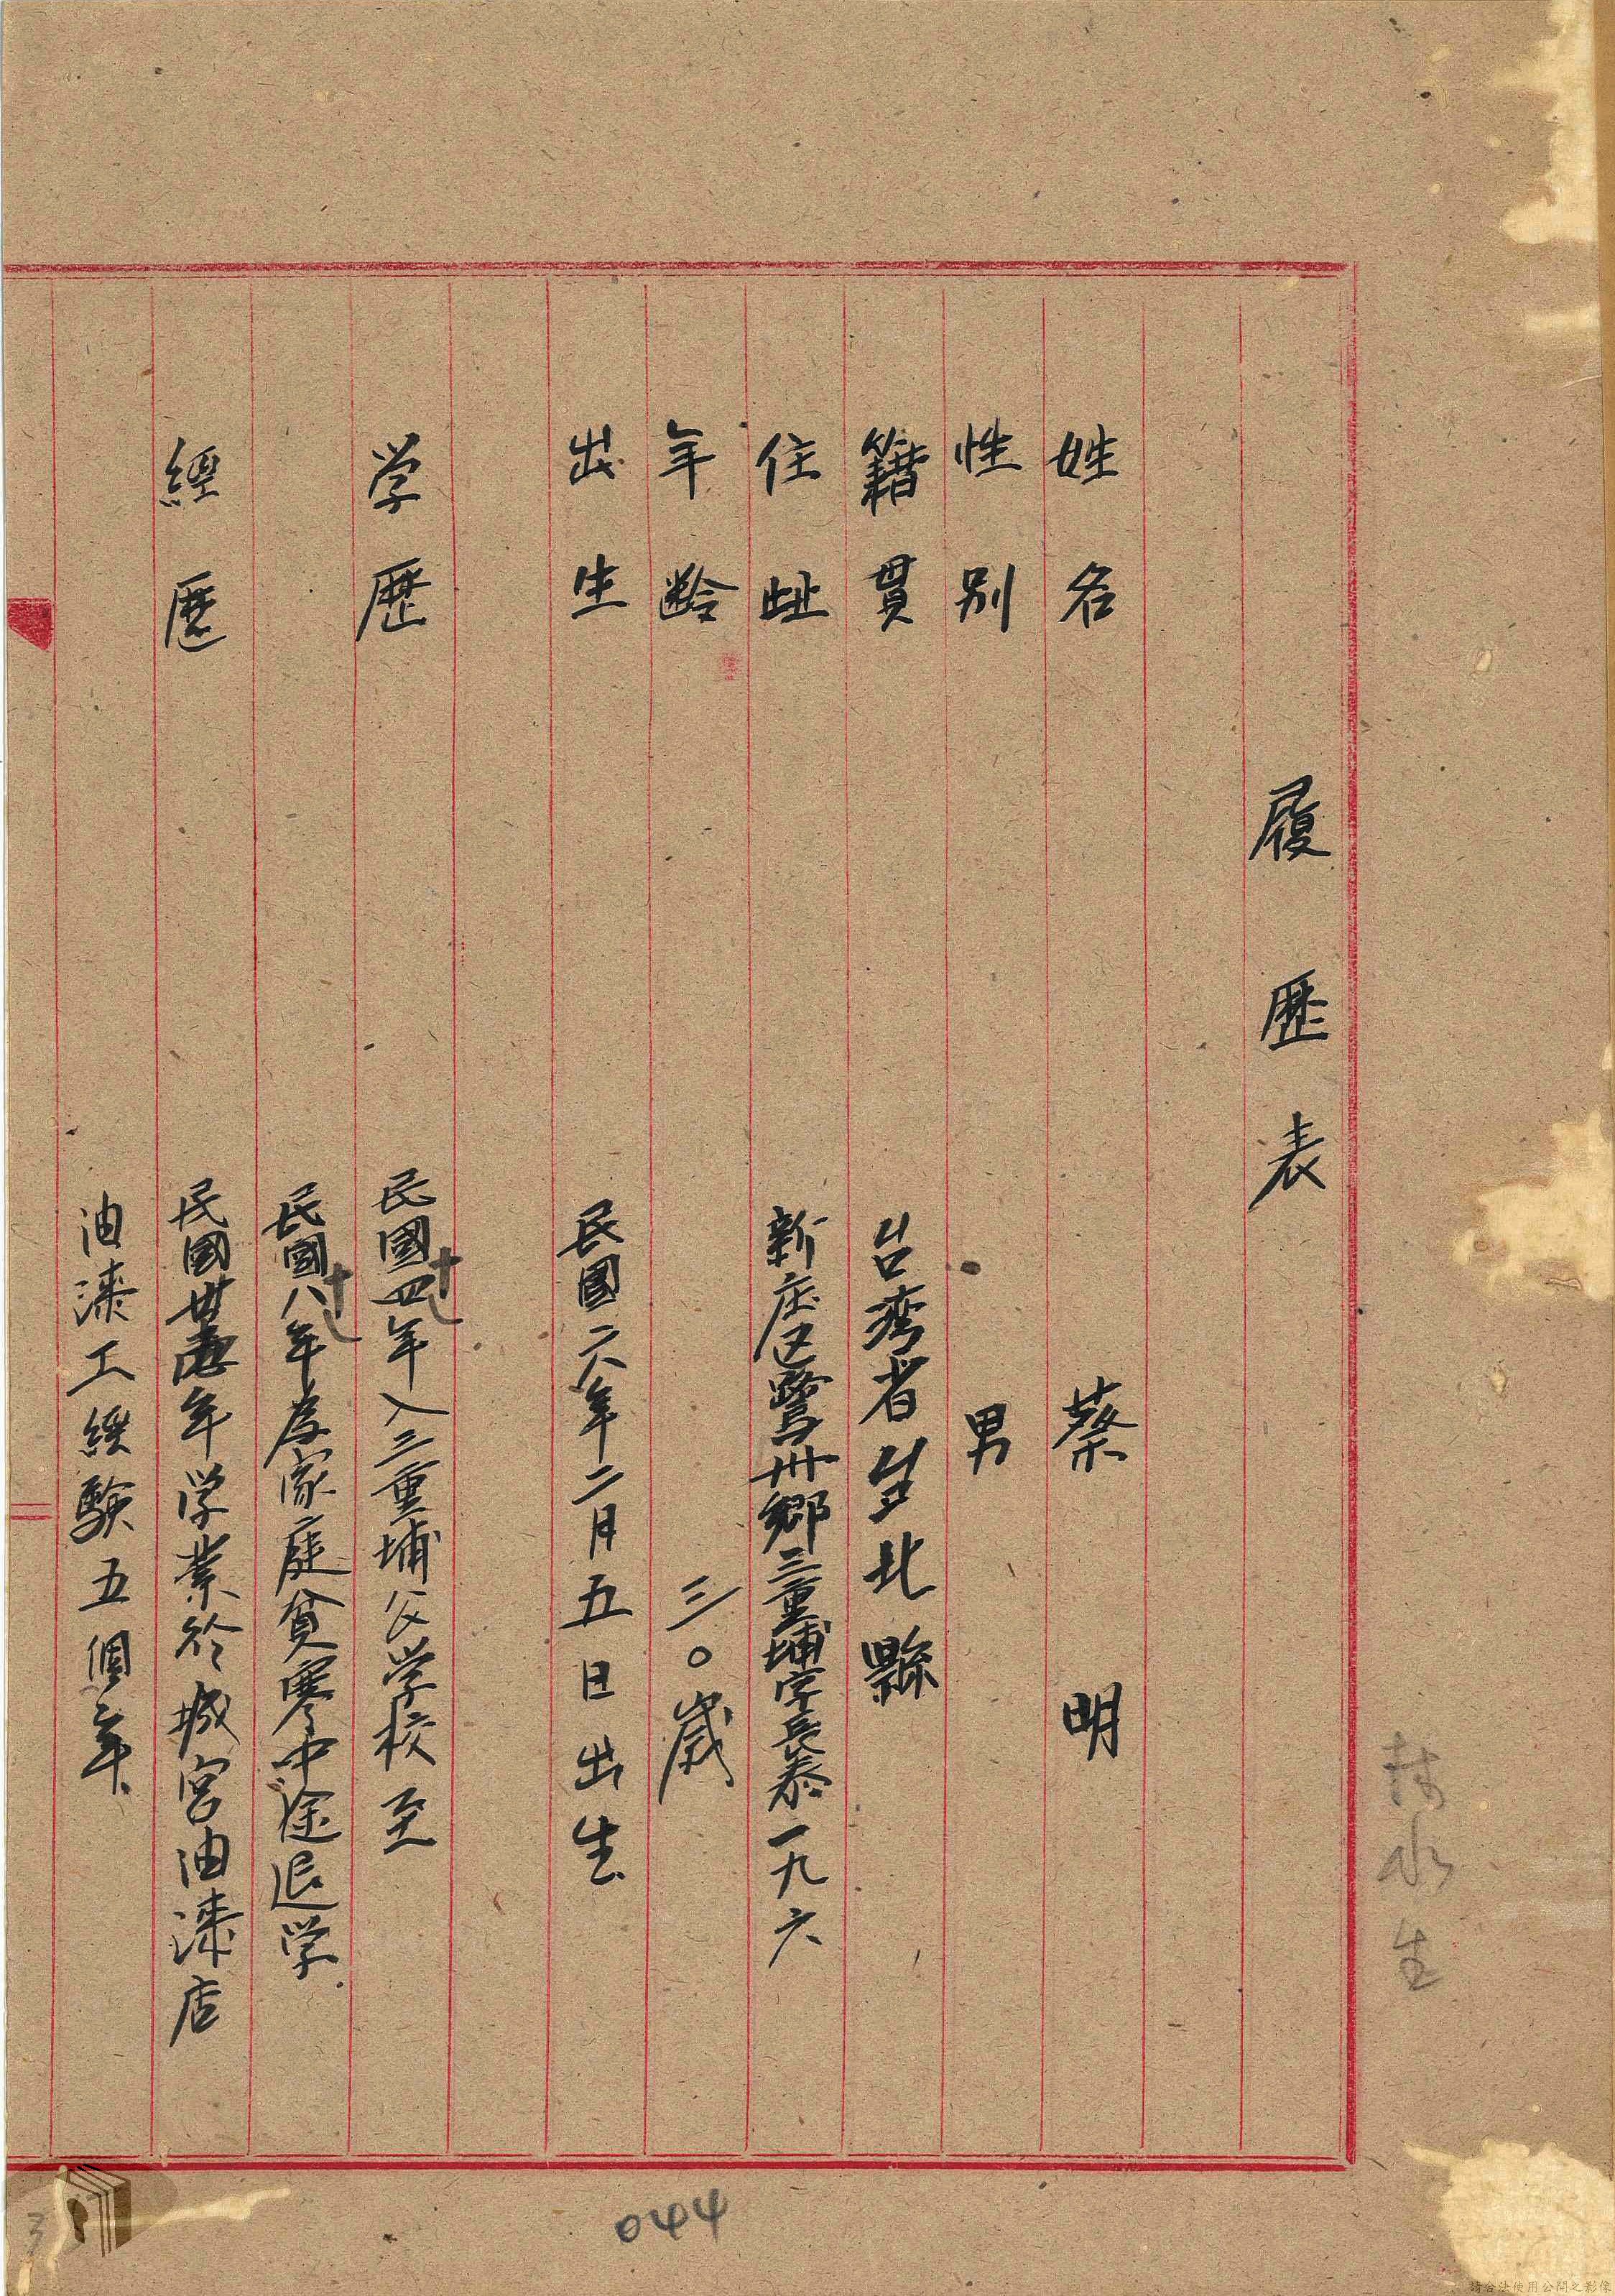 履歷表
姓名 蔡明
性別 男
籍貫 台灣省台北縣
住址 新庄区鷺州鄉三重埔字長泰一九六
年齡 三〇歲
出生 民國六年二月五日出生
学歷 民國十四年入三重埔公学校至
民國十八年為家庭貧寒中途退学
經歷 民國廿年学業於城宮油漆店
油漆工經驗五個年
水生
044
3
請合法使用公開之影像